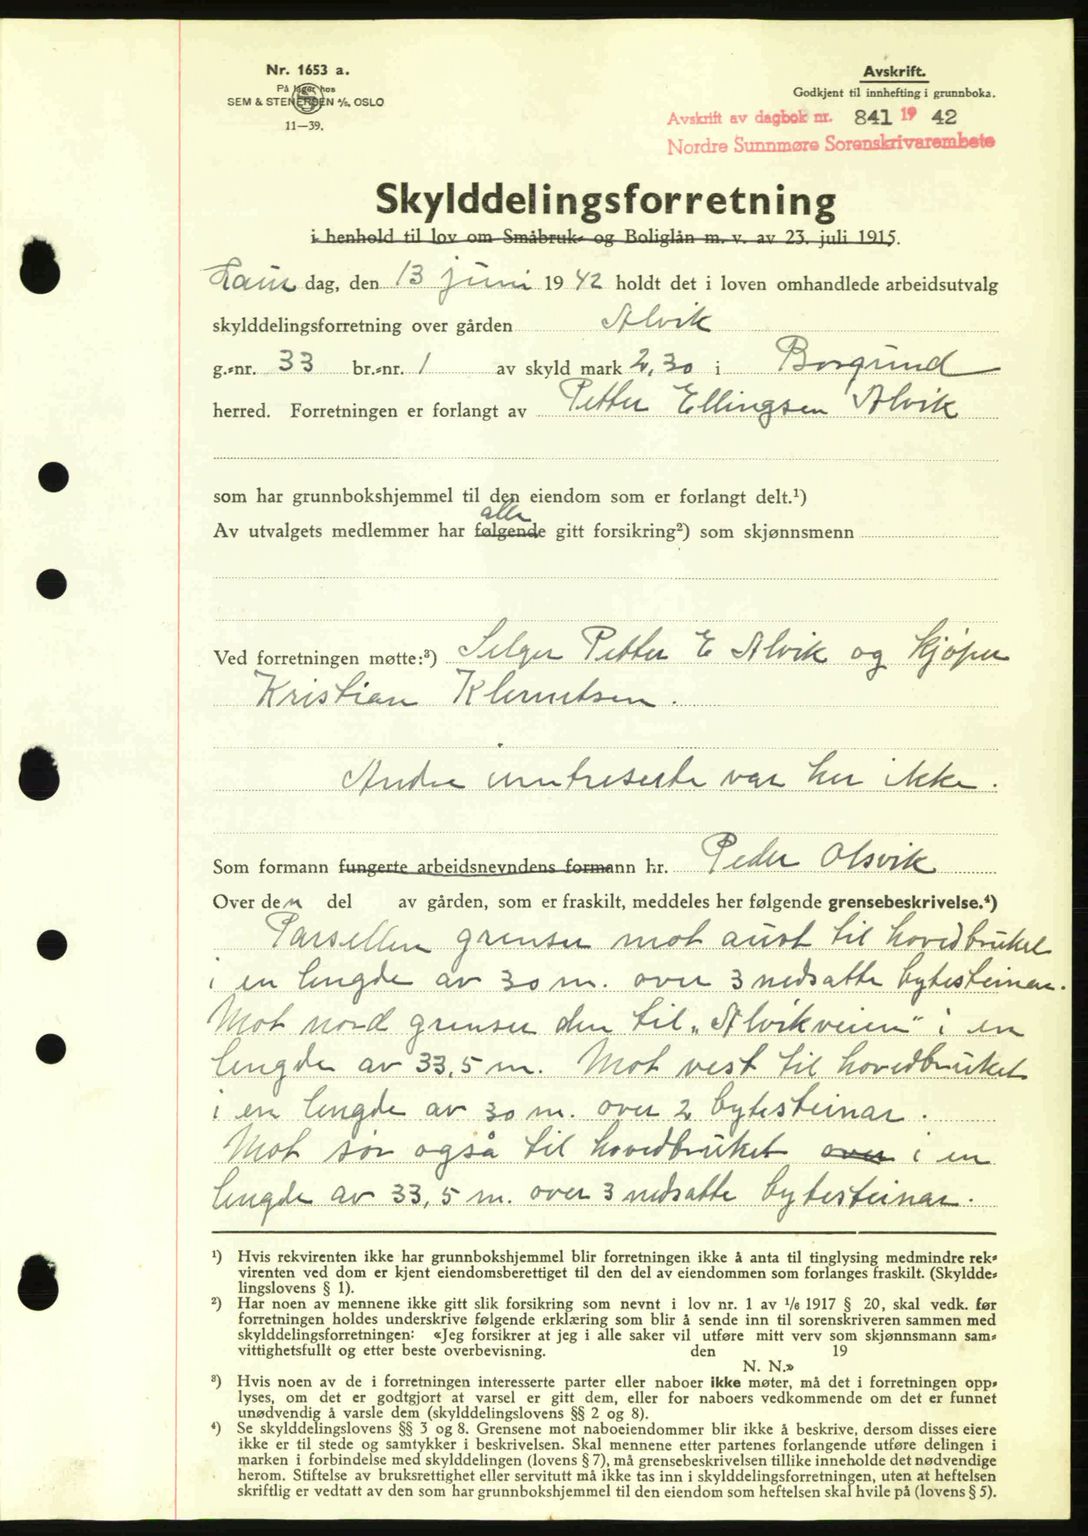 Nr. 1653 a.
På lager hos
SEM & STENERSEN A/S, OSLO
11—39.
Avskrift.
Godkjent til innhefting i grunnboka.
Avskrift av dagbok nr. 841 19 42
Nordre Sunnmøre Sorenskrivarembete
Skylddelingsforretning
i henhold til lov om Småbruk- og Boliglån m. v. av 23. juli 1915.
Laur dag, den 13 juni 1942 holdt det i loven omhandlede arbeidsutvalg
skylddelingsforretning over gården Alvik
g.-nr. 33 br.-nr. 1 av skyld mark 2,30 i Borgund
herred. Forretningen er forlangt av Petter Ellingsen Alvik
som har grunnbokshjemmel til den eiendom som er forlangt delt.¹)
alle
Av utvalgets medlemmer har følgende gitt forsikring²) som skjønnsmenn
Ved forretningen møtte:³) Selger Petter E Alvik og kjøper
Kristian Klemetsen.
Andre inntreserte var her ikke.
Som formann fungerte arbeidsnevndens formann hr. Peder Olsvik
Over den del av gården, som er fraskilt, meddeles her følgende grensebeskrivelse.⁴)
Parsellen grenser mot aust til hovedbruket
i en lengde av 30 m. over 3 nedsatte bytesteinar.
Mot nord grenser den til „Alvikveien" i en
lengde av 33,5 m. Mot vest til hovedbruket
i en lengde av 30 m. over 2 bytesteinar.
Mot sør også til hovedbruket over i en
lengde av 33,5 m. over 3 nedsatte bytesteinar.
¹) Hvis rekvirenten ikke har grunnbokshjemmel blir forretningen ikke å anta til tinglysing medmindre rek-
virenten ved dom er kjent eiendomsberettiget til den del av eiendommen som forlanges fraskilt. (Skyldde-
lingslovens § 1).
²) Har noen av mennene ikke gitt slik forsikring som nevnt i lov nr. 1 av 1/6 1917 § 20, skal vedk. før
forretningen holdes underskrive følgende erklæring som blir å sende inn til sorenskriveren sammen med
skylddelingsforretningen: «Jeg forsikrer at jeg i alle saker vil utføre mitt verv som skjønnsmann sam-
vittighetsfullt og etter beste overbevisning. den 19
N. N.»
³) Hvis noen av de i forretningen interesserte parter eller naboer ikke møter, må det i forretningen opp-
lyses, om det er godtgjort at varsel er gitt dem, eller for naboers vedkommende om det er funnet
unødvendig å varsle dem (skylddelingslovens §§ 2 og 8).
⁴) Se skylddelingslovens §§ 3 og 8. Grensene mot naboeiendommer blir ikke å beskrive, dersom disses eiere
ikke er til stede og samtykker i beskrivelsen. Skal mennene etter partenes forlangende utføre delingen i
marken i forbindelse med skylddelingen (lovens § 7), må grensebeskrivelsen tillike inneholde det nødvendige
herom. Stiftelse av bruksrettighet eller servitutt må ikke tas inn i skylddelingsforretningen, uten at heftelsen
skriftlig er vedtatt av den som har grunnbokshjemmel til den eiendom som heftelsen skal hvile på (lovens § 5).